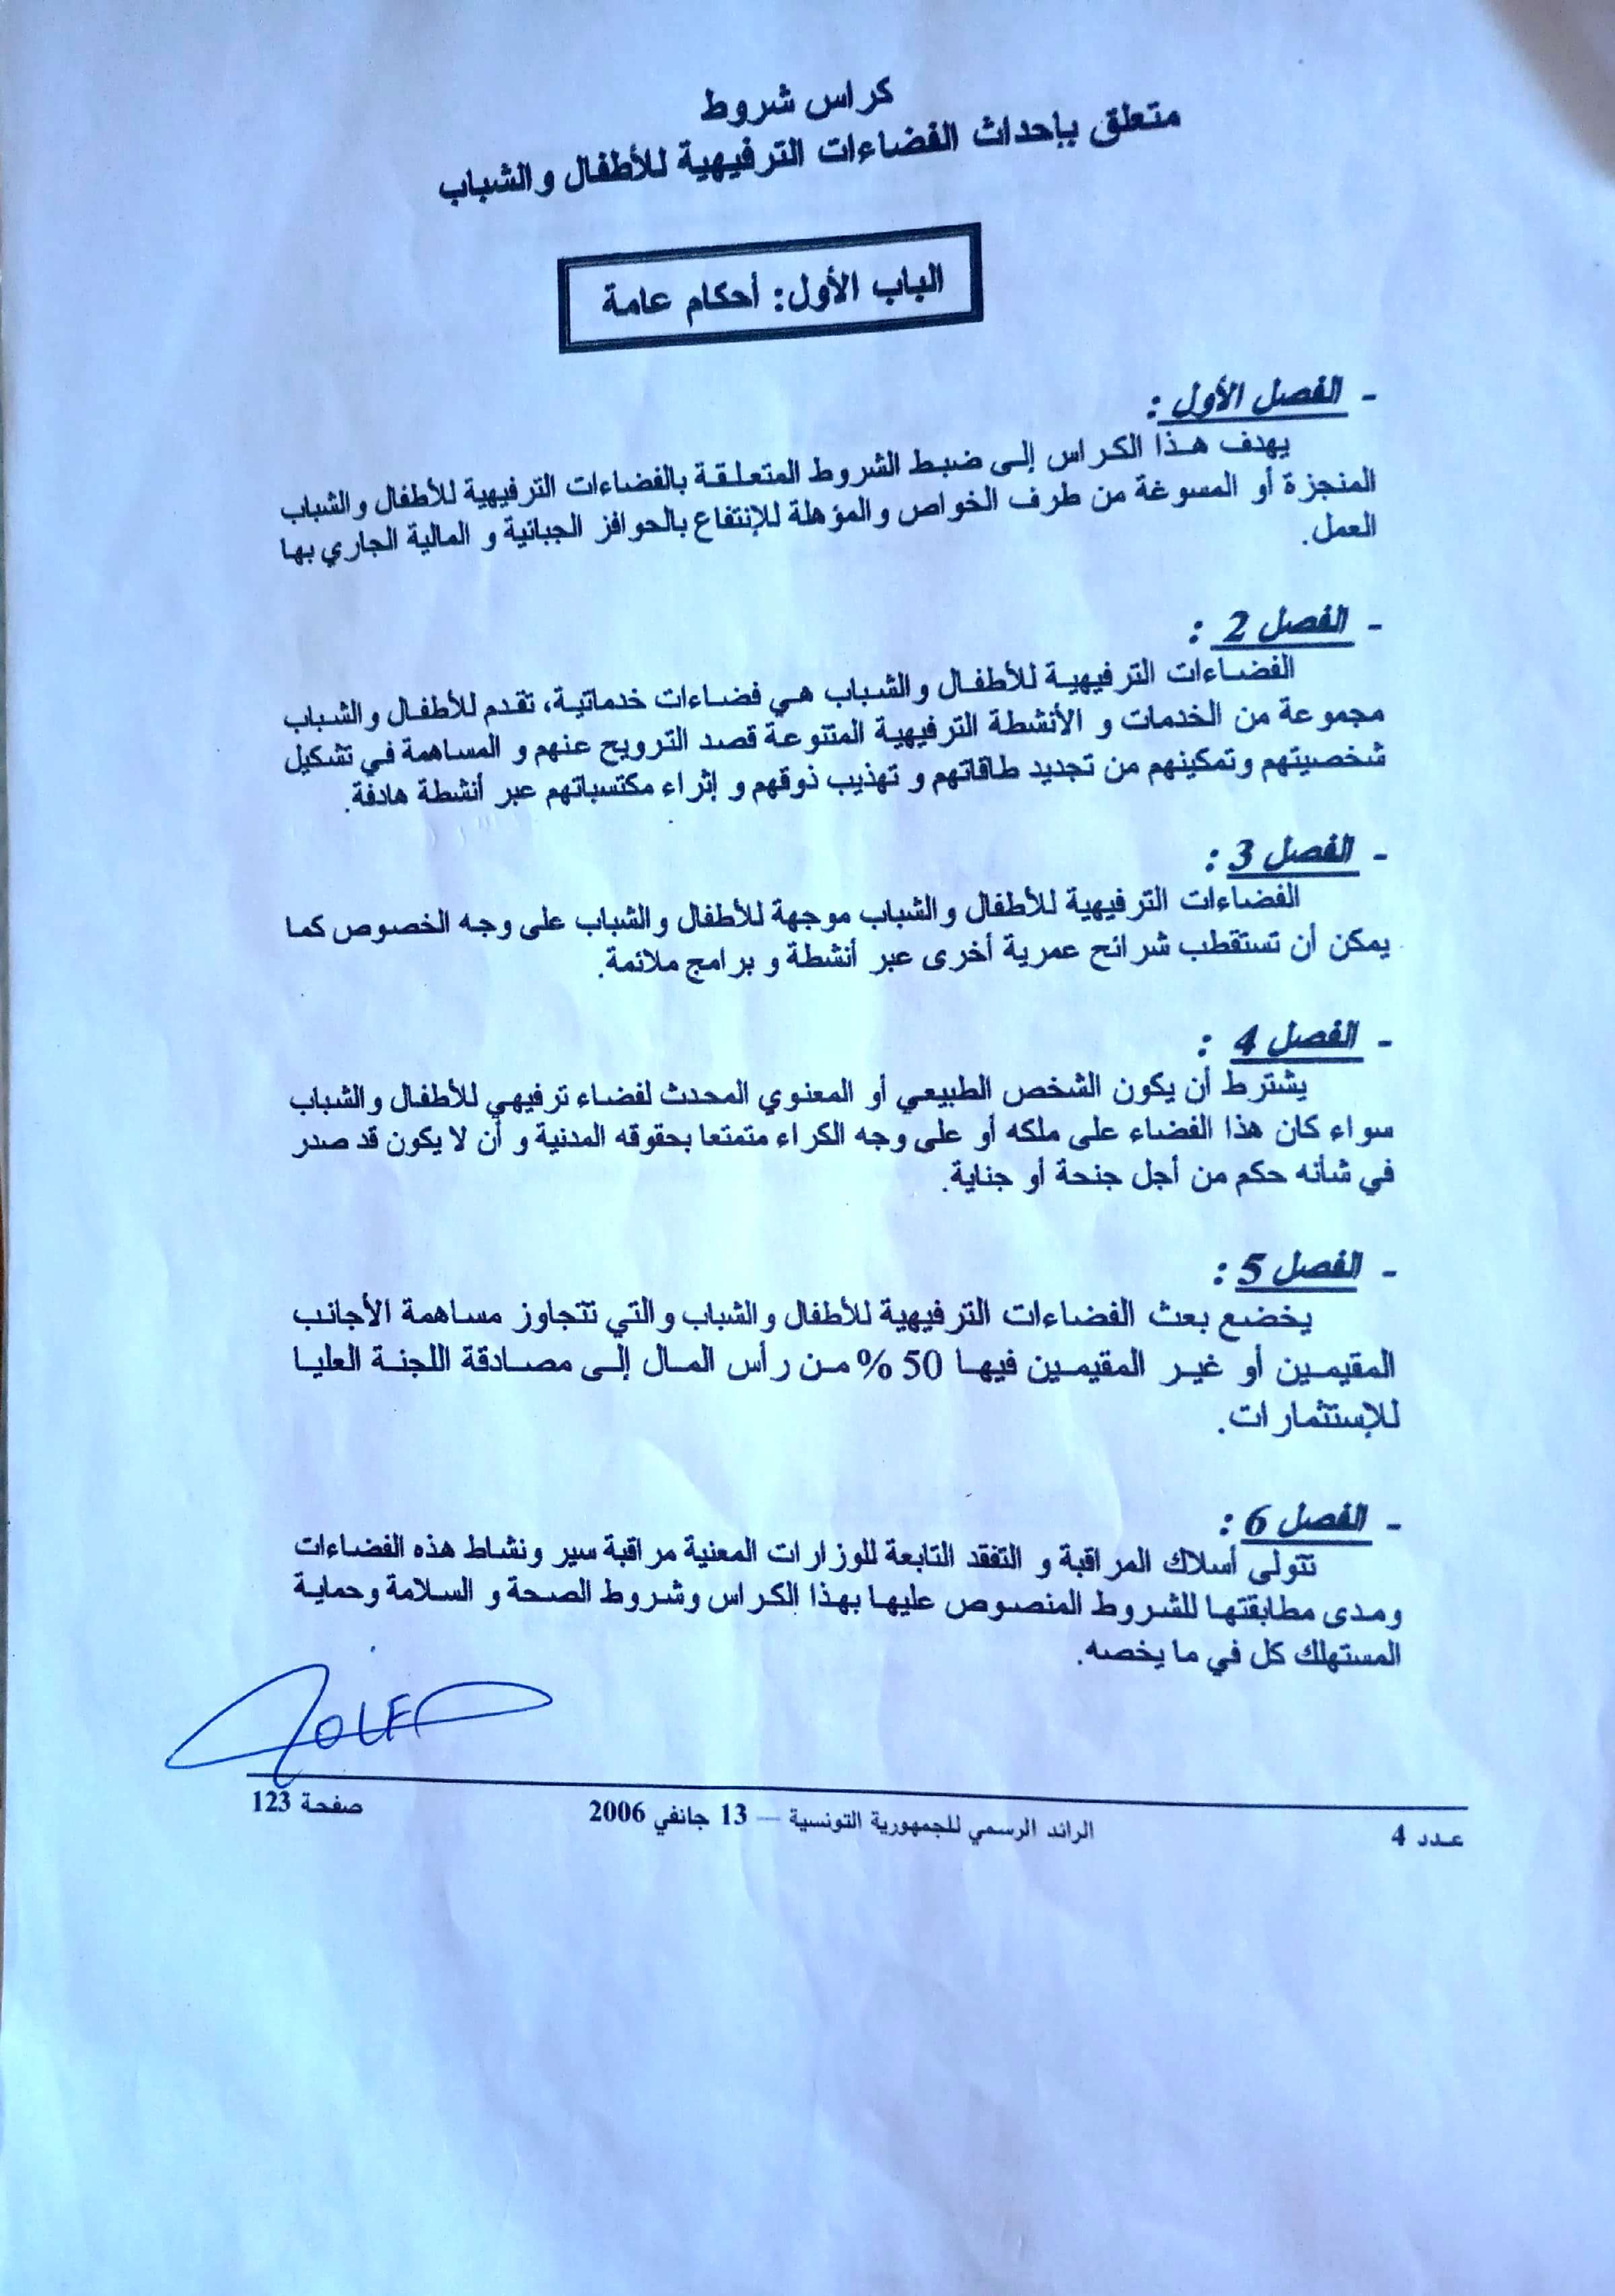 كراس شروط
متعلق بإحداث الفضاءات الترفيهية للأطفال والشباب
الباب الأول: أحكام عامة
- الفصل الأول :
يهدف هذا الكراس إلى ضبط الشروط المتعلقة بالفضاءات الترفيهية للأطفال والشباب
المنجزة أو المسوغة من طرف الخواص والمؤهلة للإنتفاع بالحوافز الجبائية و المالية الجاري بها
العمل.
- الفصل 2 :
الفضاءات الترفيهية للأطفال والشباب هي فضاءات خدماتية، تقدم للأطفال والشباب
مجموعة من الخدمات و الأنشطة الترفيهية المتنوعة قصد الترويح عنهم و المساهمة في تشكيل
شخصيتهم وتمكينهم من تجديد طاقاتهم و تهذيب ذوقهم و إثراء مكتسباتهم عبر أنشطة هادفة.
- الفصل 3 :
الفضاءات الترفيهية للأطفال والشباب موجهة للأطفال والشباب على وجه الخصوص كما
يمكن أن تستقطب شرائح عمرية أخرى عبر أنشطة و برامج ملائمة.
- الفصل 4 :
يشترط أن يكون الشخص الطبيعي أو المعنوي المحدث لفضاء ترفيهي للأطفال والشباب
سواء كان هذا الفضاء على ملكه أو على وجه الكراء متمتعا بحقوقه المدنية و أن لا يكون قد صدر
في شأنه حكم من أجل جنحة أو جناية.
- الفصل 5 :
يخضع بعث الفضاءات الترفيهية للأطفال والشباب والتي تتجاوز مساهمة الأجانب
المقيمين أو غير المقيمين فيها 50 % من رأس المال إلى مصادقة اللجنة العليا
للإستثمارات.
- الفصل 6 :
تتولى أسلاك المراقبة و التفقد التابعة للوزارات المعنية مراقبة سير ونشاط هذه الفضاءات
ومدى مطابقتها للشروط المنصوص عليها بهذا الكراس وشروط الصحة و السلامة وحماية
المستهلك كل في ما يخصه.
عدد 4 الرائد الرسمي للجمهورية التونسية — 13 جانفي 2006 صفحة 123